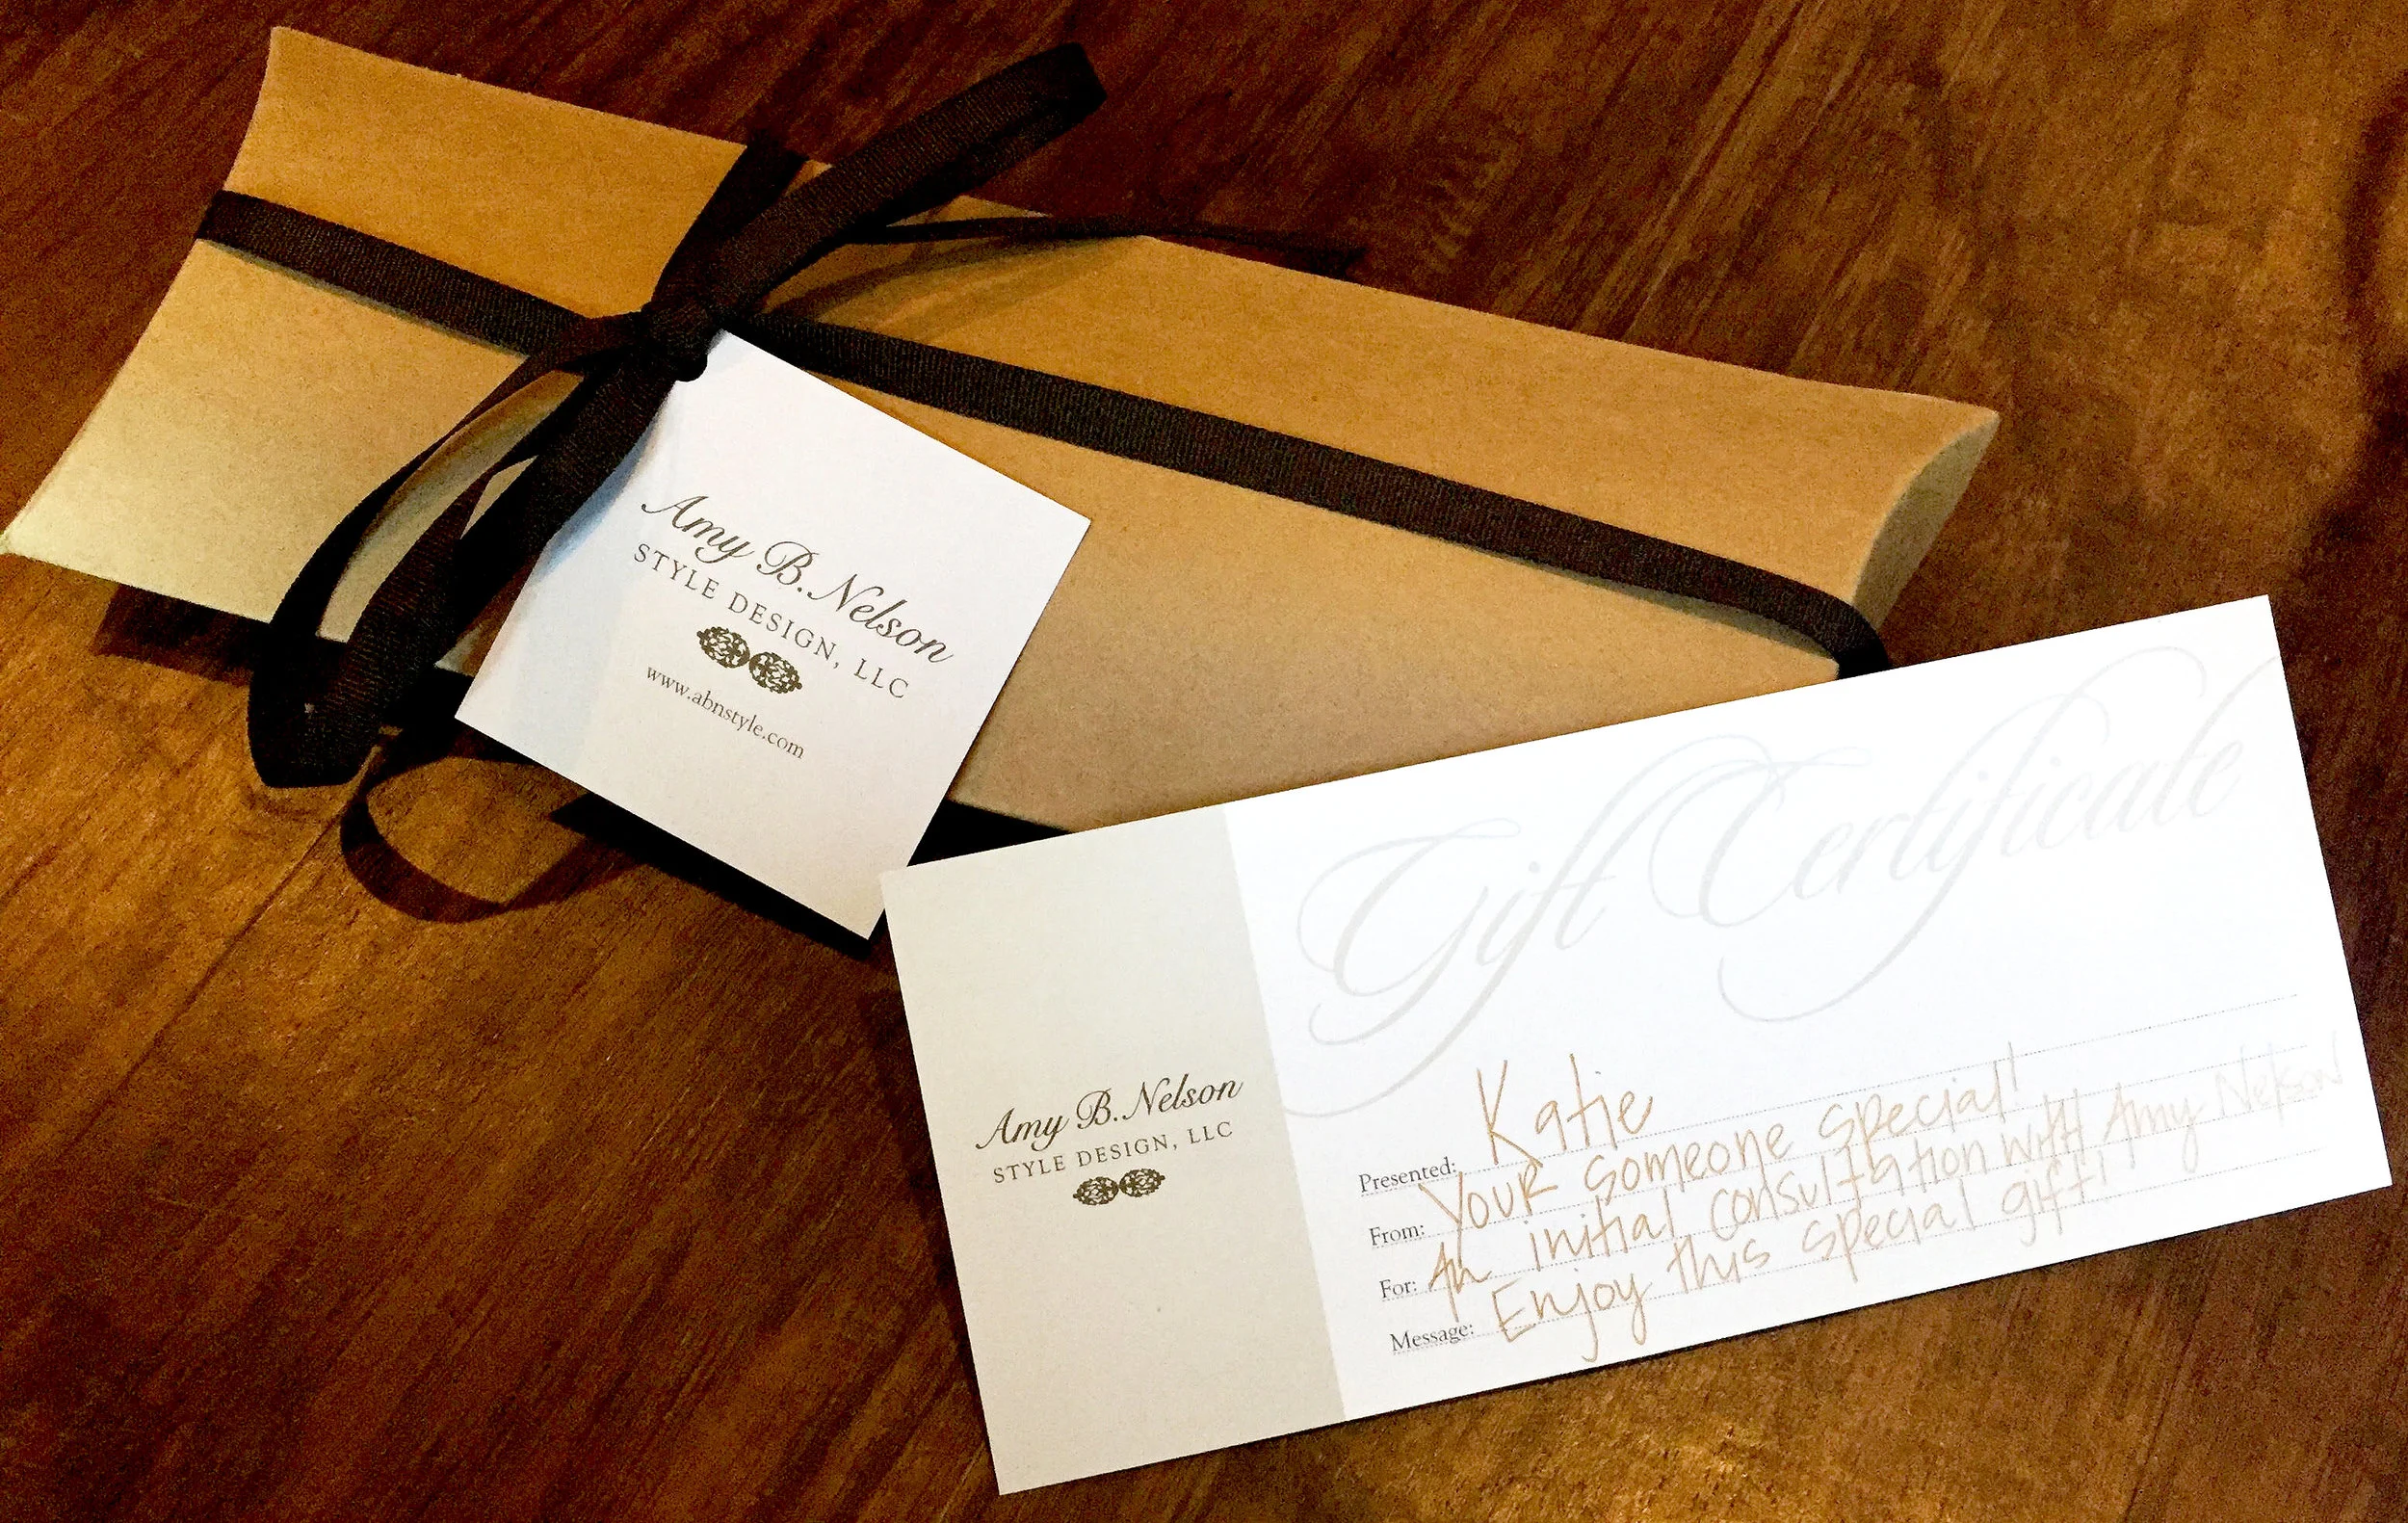 Amy B. Nelson
STYLE DESIGN, LLC
www.abnstyle.com
Gift Certificate
Amy B. Nelson
STYLE DESIGN, LLC
Presented: Katie
From: Your someone special!
For: An initial consultation with Amy Nelson
Message: Enjoy this special gift!